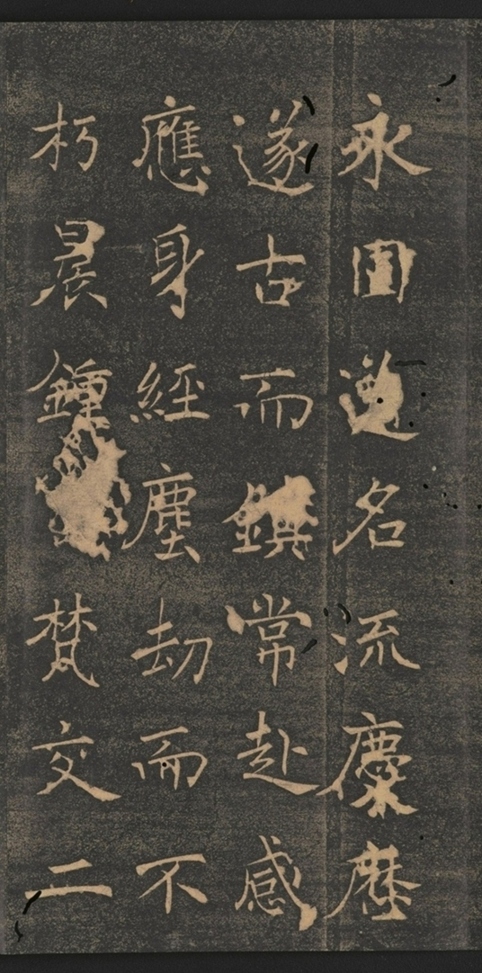 永固道名流慶歷
遂古而鎮常赴感
應身經塵劫而不
朽晨鍾梵交二